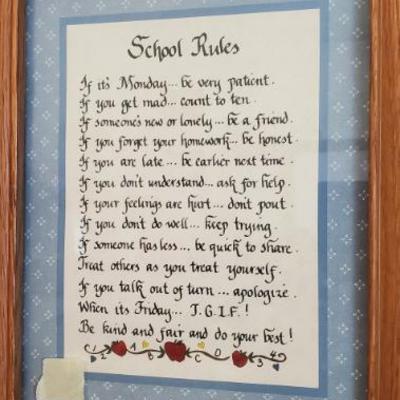 School Rules
If it's Monday... be very patient.
If you get mad... count to ten.
If someone's new or lonely... be a friend.
If you forget your homework... be honest.
If you are late... be earlier next time.
If you don't understand... ask for help.
If your feelings are hurt... don't pout.
If you don't do well... keep trying.
If someone has less... be quick to share.
Treat others as you treat yourself.
If you talk out of turn... apologize.
When its Friday... T.G.I.F.!
Be kind and fair and do your best!
1 2 A B C D 3 4